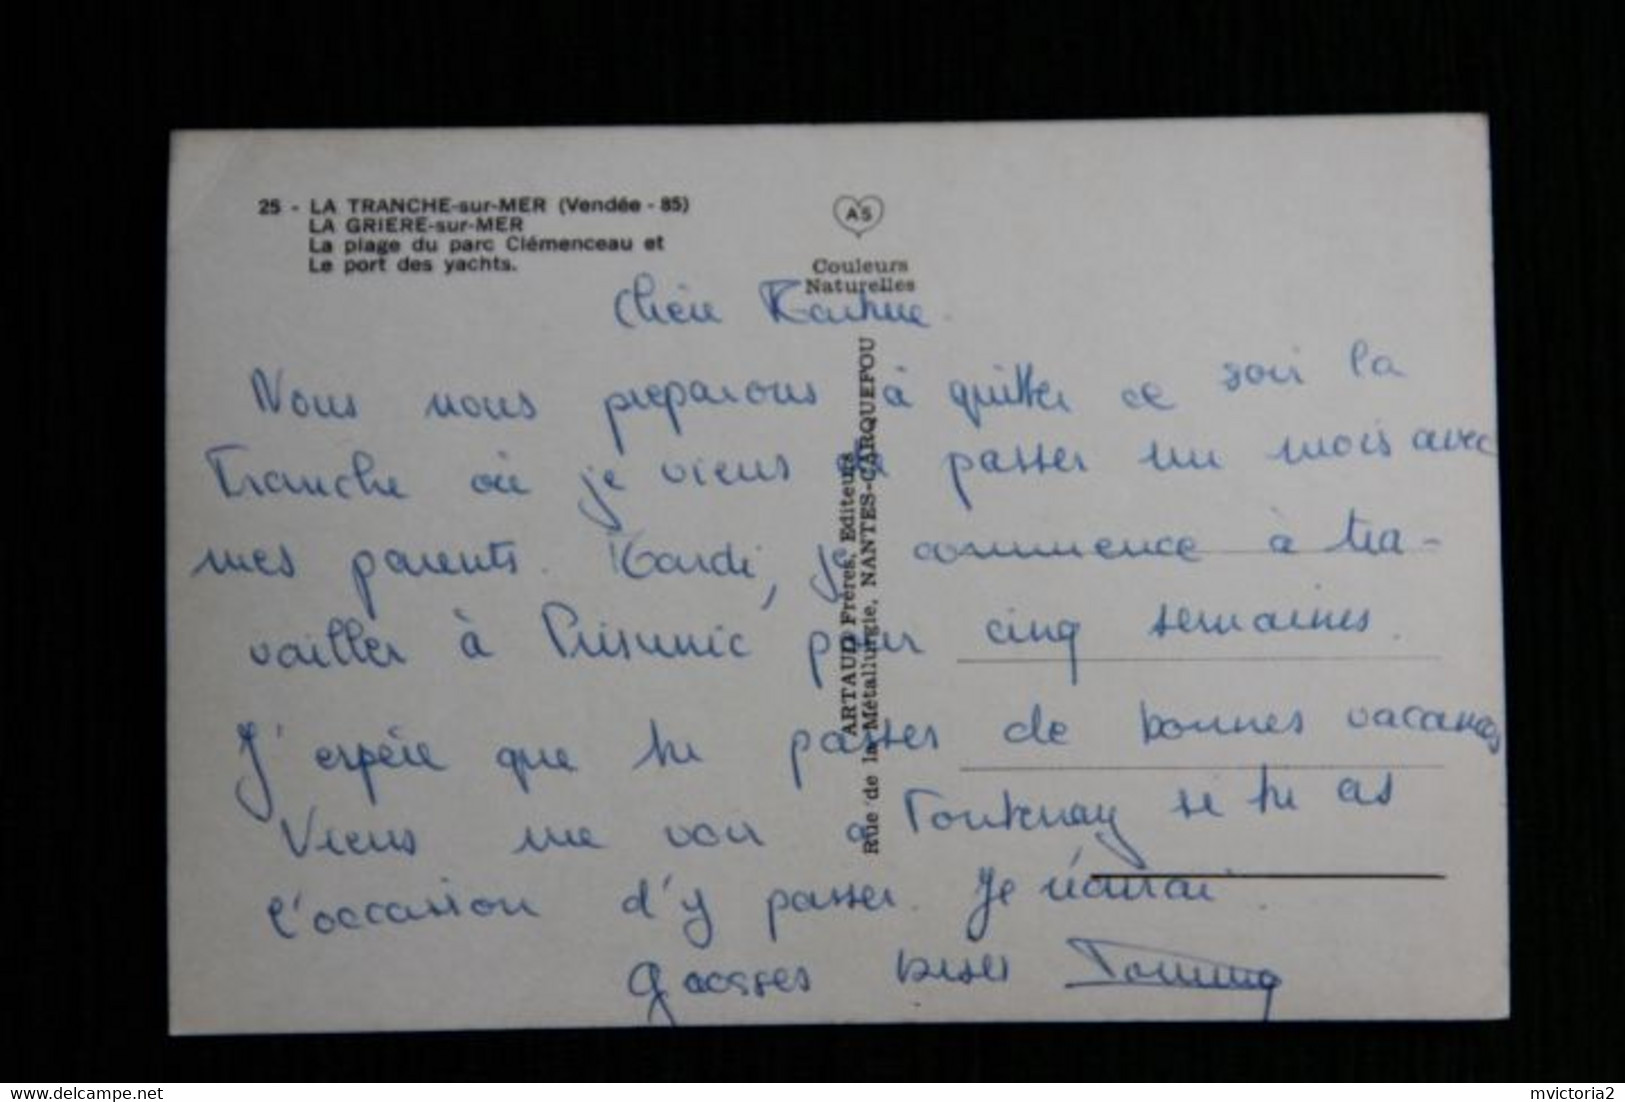 25 - LA TRANCHE-sur-MER (Vendée - 85)
LA GRIERE-sur-MER
La plage du parc Clémenceau et
Le port des yachts.
AS
Couleurs
Naturelles
ARTAUD Frères, Editeurs
Rue de la Métallurgie, NANTES-CARQUEFOU
Chère
Nous nous preparons à quitter ce soir la
Tranche où je viens de passer un mois avec
mes parents. Mardi, je commence à tra-
vailler à Prisunic pour cinq semaines.
J'espère que tu passes de bonnes vacances
Viens me voir à Fontenay si tu as
l'occasion d'y passer. Je
Grosses bises
www.delcampe.net
mvictoria2